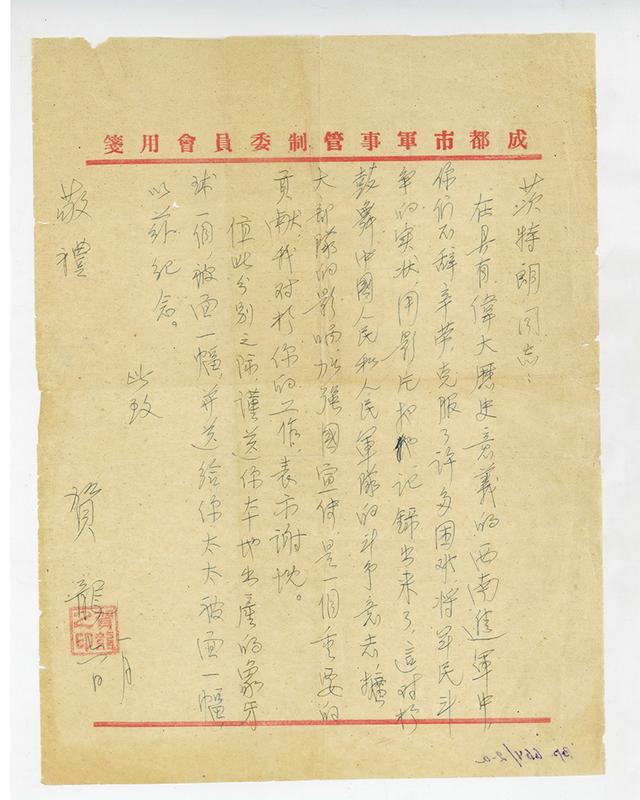 成都市軍事管制委員會用箋
茨特朗同志：
在具有偉大歷史意義的西南進軍中，
你們不辞辛劳，克服了许多困难，将军民斗
争的实状，用影片把他记錄出来了，這对於
鼓舞中國人民和人民軍隊的斗争意志，擴
大部隊的影响，加强國宣傳，是一個重要的
贡献，我对於你的工作，表示谢忱。
值此分别之际，謹送你本地出產的象牙
球一個，被面一幅，并送给你太太被面一幅，
以兹纪念。
此致
敬禮
賀龍
一月
日
賀龍之印
Вр. 664/2-а